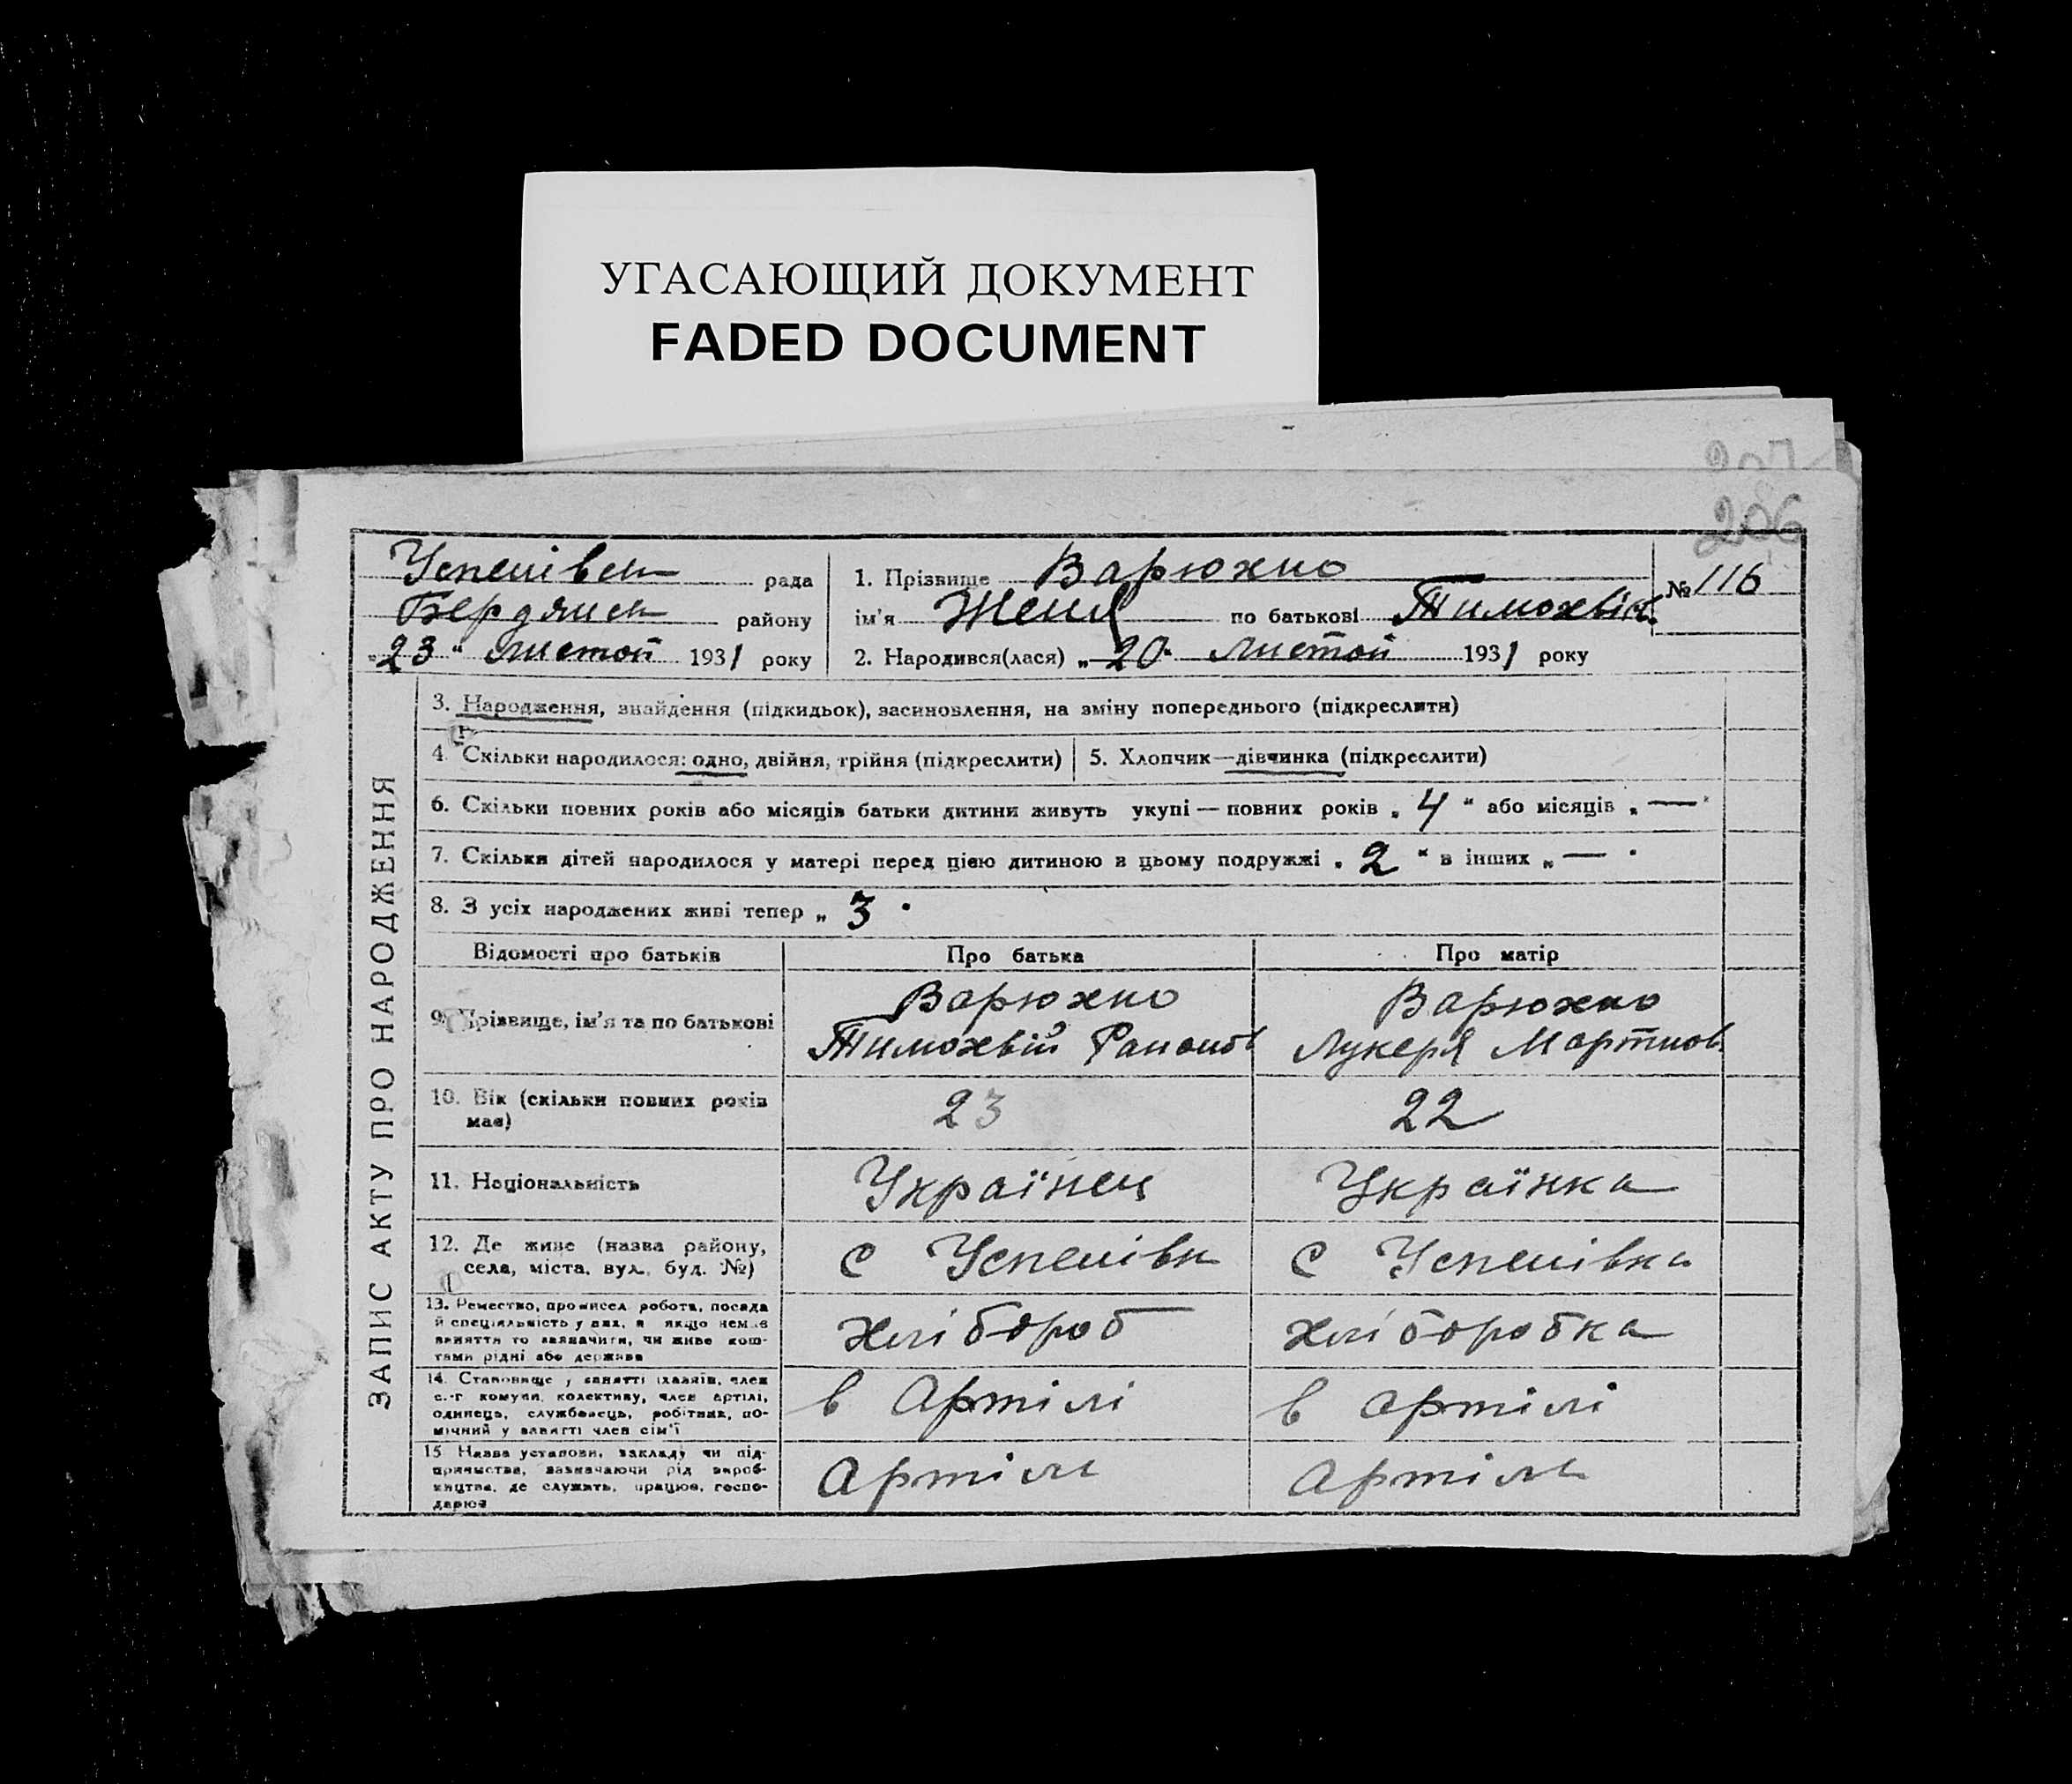 УГАСАЮЩИЙ ДОКУМЕНТ
FADED DOCUMENT
207
206
Успенівськ рада
Бердянськ району
„23“ листоп 1931 року
1. Прізвище Варюхно
ім'я Женя по батькові Тимохвієв.
№ 116
2. Народився(лася) „20“ листоп 1931 року
ЗАПИС АКТУ ПРО НАРОДЖЕННЯ
3. Народження, знайдення (підкидьок), засиновлення, на зміну попереднього (підкреслити)
4. Скільки народилося: одно, двійня, трійня (підкреслити)
5. Хлопчик—дівчинка (підкреслити)
6. Скільки повних років або місяців батьки дитини живуть укупі — повних років „4“ або місяців „—“
7. Скільки дітей народилося у матері перед цією дитиною в цьому подружжі „2“ в інших „—“
8. З усіх народжених живі тепер „3“
Відомості про батьків Про батька Про матір
9. Прізвище, ім'я та по батькові
Варюхно
Тимохвій
Варюхно
Лукеря Мартинов.
10. Вік (скільки повних років
має)
23
22
11. Національність
Українець
Українка
12. Де живе (назва району,
села, міста, вул., буд. №)
с Успенівк
с Успенівка
13. Ремество, промисел робота, посада
й спеціяльність у них, а якщо немає
заняття то зазначити, чи живе кош-
тами рідні або держава
хлібороб
хліборобка
14. Становище у занятті (хазяїн, член
с.-г комуни, колективу, член артілі,
одинець, службовець, робітник, по-
мічний у занятті член сім'ї
в Артілі
в артілі
15 Назва установи, закладу чи під-
приємства, зазначаючи рід вироб-
ництва, де служить, працює, госпо-
дарює
Артіль
Артіль